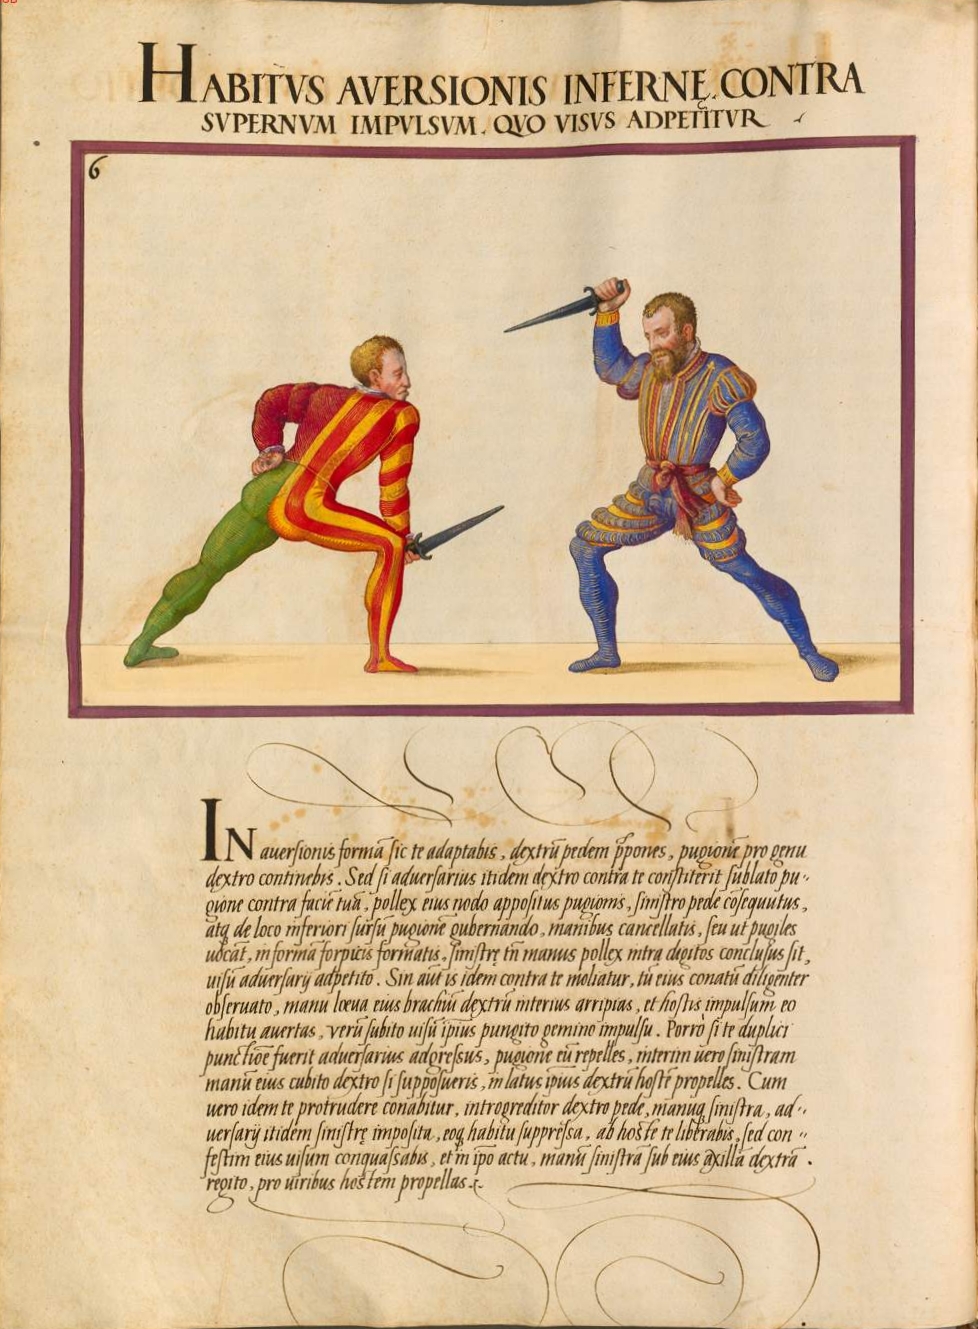 HABITVS AVERSIONIS INFERNĘ CONTRA
SVPERNVM IMPVLSVM. QVO VISVS ADPETITVR
6
IN aversionis formā sic te adaptabis, dextrū pedem ꝓpones, pugionē pro genu
dextro continebis. Sed si adversarius itidem dextro contra te constiterit sublato pu-
gione contra faciē tuā, pollex eius nodo appositus pugionis, sinistro pede cōsequutus,
atq de loco inferiori sursū pugionē gubernando, manibus cancellatis, seu ut pugiles
vocāt, in forma forpicis formatis, sinistrę tn̄ manus pollex intra digitos conclusus sit,
visū adversarij adpetito. Sin aūt is idem contra te moliatur, tū eius conatū diligenter
observato, manu lœva eius brachiū dextrū interius arripias, et hostis impulsum eo
habitu avertas, verū subito visū ipius pungito gemino impulsu. Porrò si te duplici
punctiōe fuerit adversarius adgressus, pugione eū repelles, interim vero sinistram
manū eius cubito dextro si supposueris, in latus ipius dextrū hostē propelles. Cum
vero idem te protrudere conabitur, introgreditor dextro pede, manuq sinistra, ad-
versarij itidem sinistrę imposita, eoq habitu suppressa, ab hoste te liberabis, sed con-
festim eius visum conquassabis, et in ipo actu, manū sinistra sub eius axillā dextrā
regito, pro viribus hostem propellas.